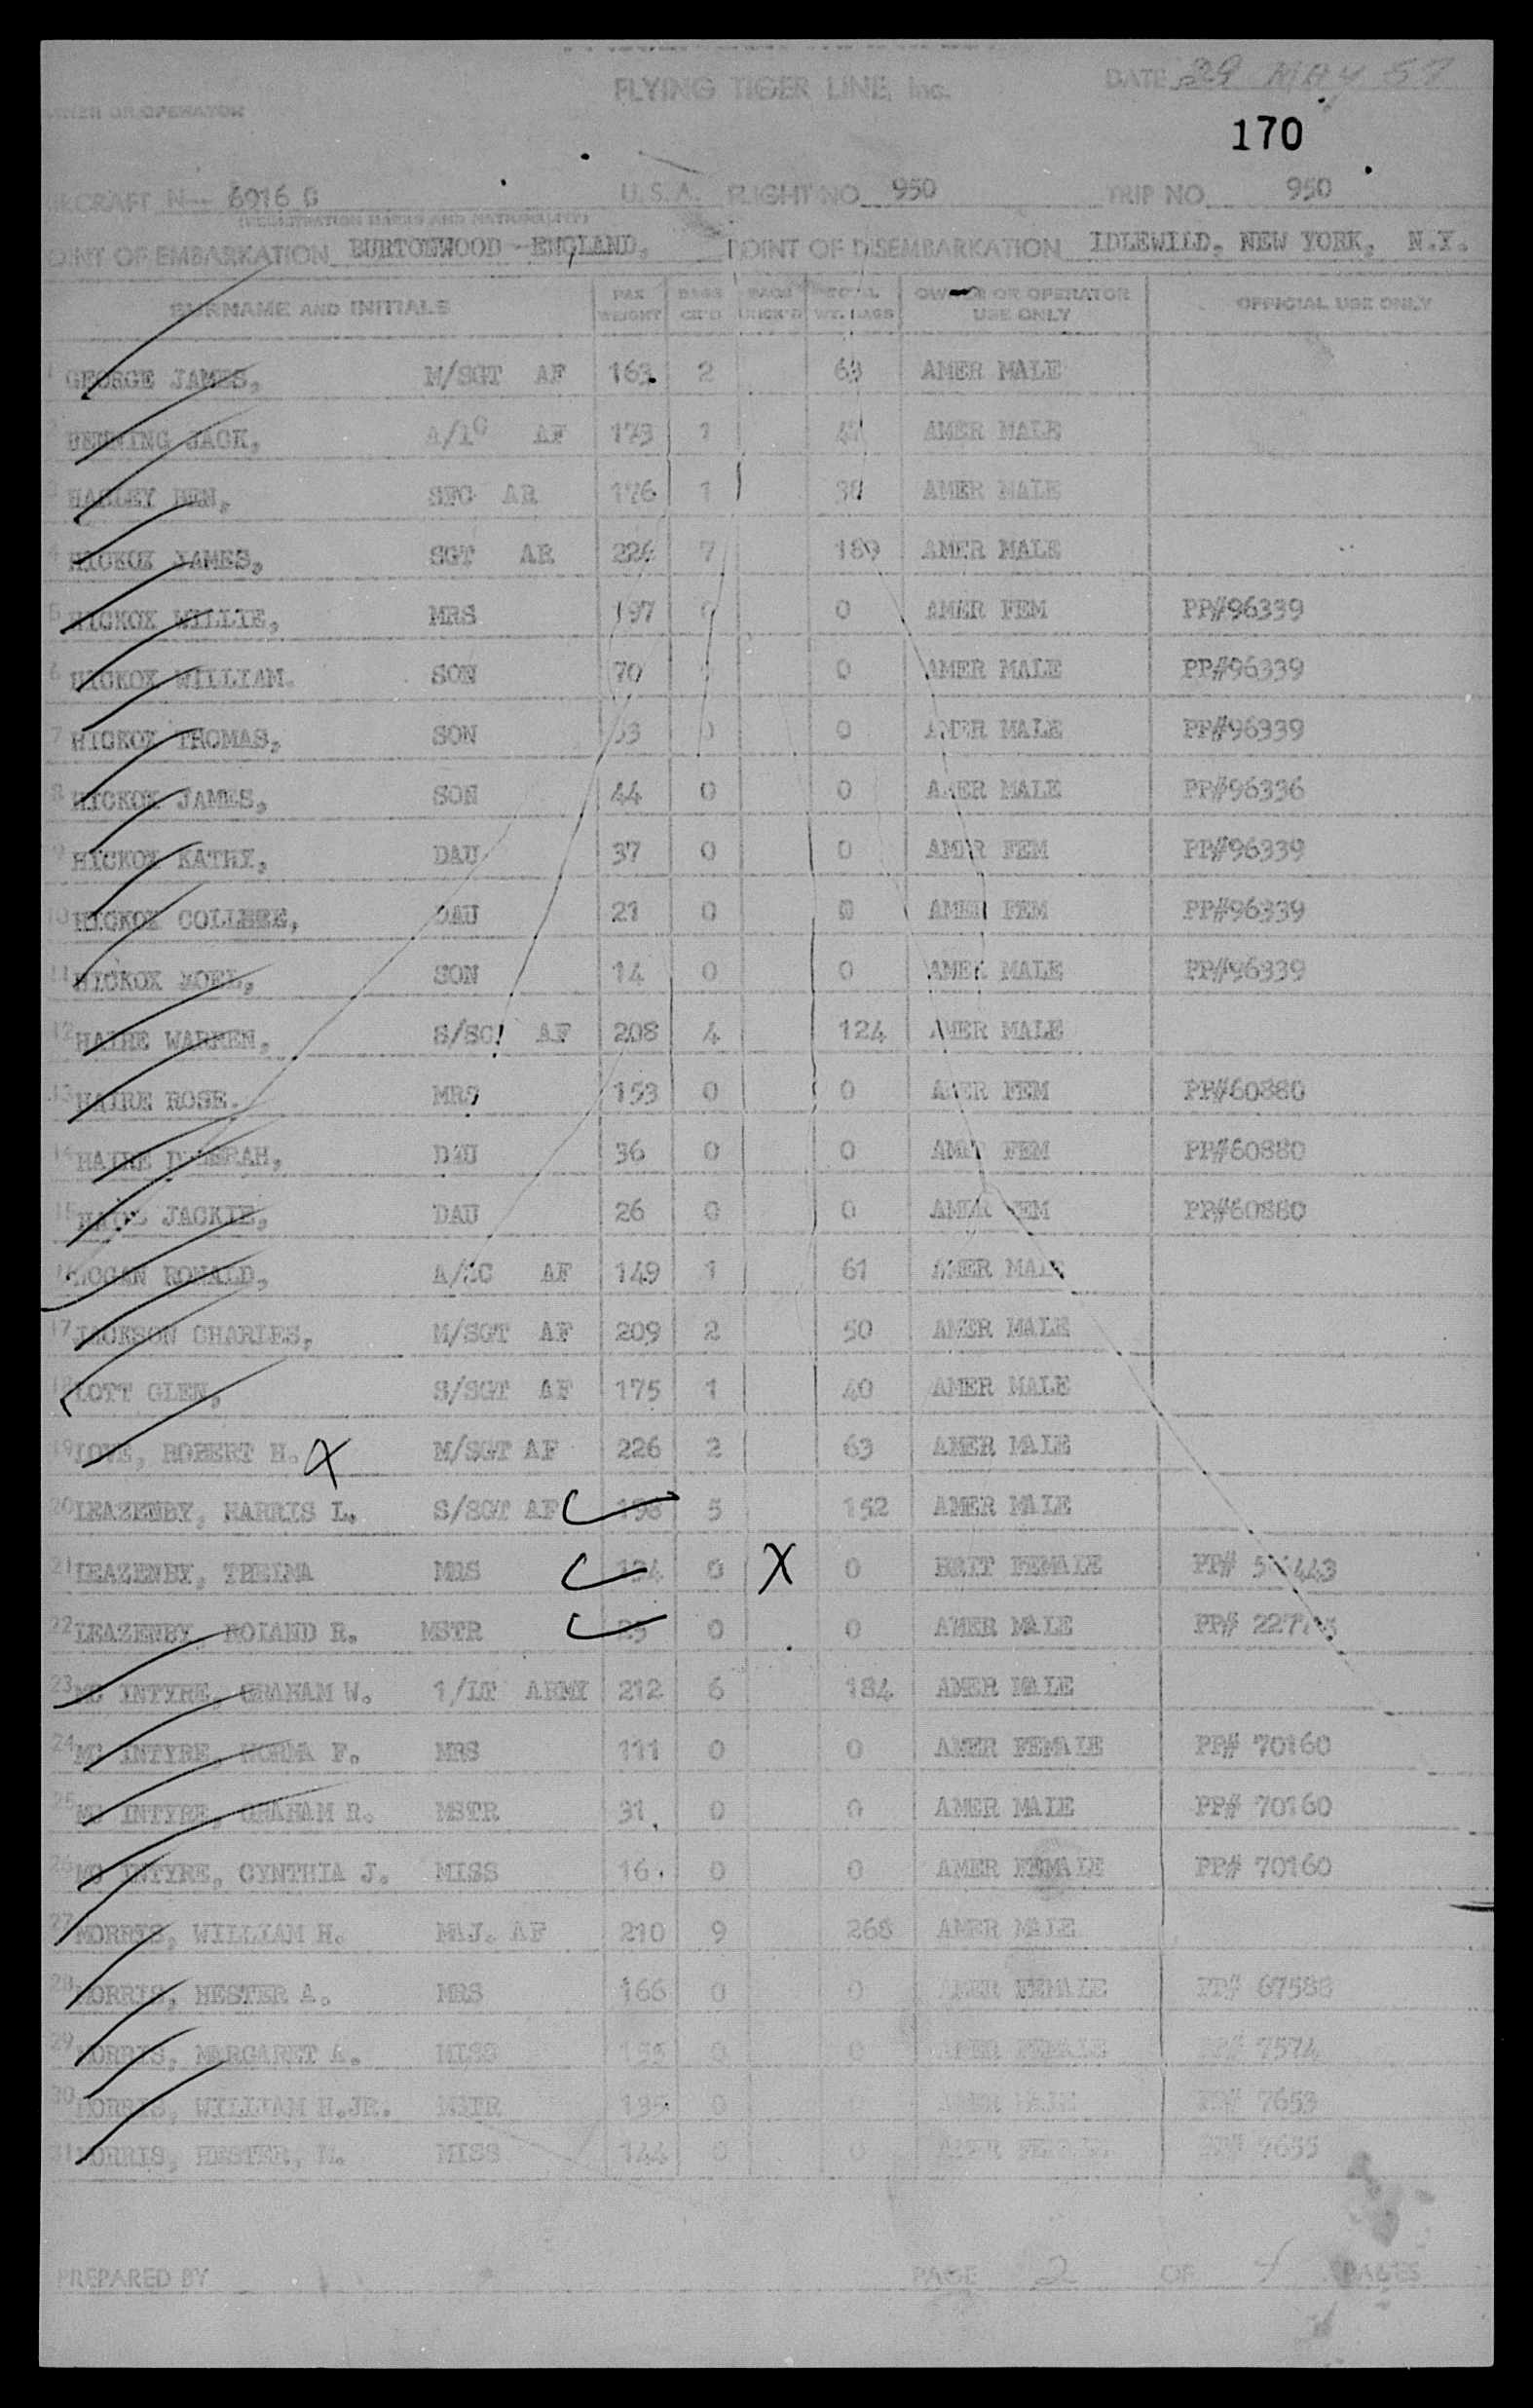 FLYING TIGER LINE, Inc.
DATE 29 MAY 57
OWNER OR OPERATOR
170
AIRCRAFT N-- 6916 C U.S.A. FLIGHT NO 950 TRIP NO. 950
(REGISTRATION MARKS AND NATIONALITY)
POINT OF EMBARKATION BURTONWOOD - ENGLAND, POINT OF DISEMBARKATION IDLEWILD, NEW YORK, N.Y.
SURNAME AND INITIALS PAX WEIGHT BAGS CK'D BAGS TOTAL WT. BAGS OWNER OR OPERATOR USE ONLY OFFICIAL USE ONLY
1 GEORGE JAMES, M/SGT AF 163 2 63 AMER MALE
2 JACK, A/1C AF 173 1 AMER MALE
3 HARLEY BEN, SFC AR 176 1 38 AMER MALE
4 HICKOX JAMES, SGT AR 224 7 189 AMER MALE
5 HICKOX WILLIE, MRS 197 0 0 AMER FEM PP#96339
6 HICKOX WILLIAM. SON 70 0 AMER MALE PP#96339
7 HICKOX THOMAS, SON 53 0 0 AMER MALE PP#96339
8 HICKOX JAMES, SON 44 0 0 AMER MALE PP#96336
9 HICKOX KATHY, DAU 37 0 0 AMER FEM PP#96339
10 HICKOX COLLEEE, DAU 21 0 0 AMER FEM PP#96339
11 HICKOX NOEL, SON 14 0 0 AMER MALE PP#96339
12 HAIRE WARREN, S/SGT AF 208 4 124 AMER MALE
13 HAIRE ROSE. MRS 153 0 0 AMER FEM PP#60880
14 HAIRE DEBERAH, DAU 36 0 0 AMER FEM PP#60880
15 HAIRE JACKIE, DAU 26 0 0 AMER FEM PP#60880
16 HOGAN RONALD, A/2C AF 149 1 61 AMER MALE
17 JACKSON CHARLES, M/SGT AF 209 2 50 AMER MALE
18 LOTT GLEN, S/SGT AF 175 1 40 AMER MALE
19 LOVE, ROBERT H. X M/SGT AF 226 2 63 AMER MALE
20 LEAZENBY, HARRIS L. S/SGT AF 198 5 152 AMER MALE
21 LEAZENBY, THELMA MRS 134 0 X 0 BRIT FEMALE PP#
22 LEAZENBY, ROLAND R. MSTR 0 0 AMER MALE PP#
23 MC INTYRE, GRAHAM W. 1/LT ARMY 212 6 184 AMER MALE
24 MC INTYRE, NORMA F. MRS 111 0 0 AMER FEMALE PP# 70160
25 MC INTYRE, GRAHAM R. MSTR 31 0 0 AMER MALE PP# 70160
26 MC INTYRE, CYNTHIA J. MISS 16 0 0 AMER FEMALE PP# 70160
27 MORRIS, WILLIAM H. MAJ. AF 210 9 268 AMER MALE
28 MORRIS, HESTER A. MRS 166 0 0 AMER FEMALE PP# 67588
29 MORRIS, MARGARET A. MISS 155 0 0 AMER FEMALE PP# 7574
30 MORRIS, WILLIAM H.JR. MSTR 135 0 AMER MALE PP# 7653
31 MORRIS, HESTER, M. MISS 144 0 0 AMER FEMALE PP# 7655
PREPARED BY PAGE 2 OF 4 PAGES